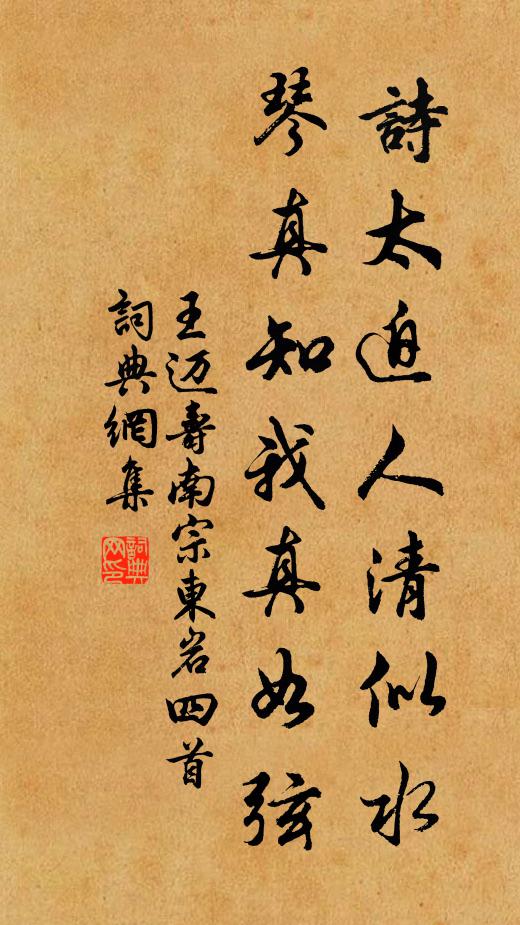 詩太迫人清似水
琴真知我真如弦
王迈壽南宗東岩四首
詞典網集
詞典网印